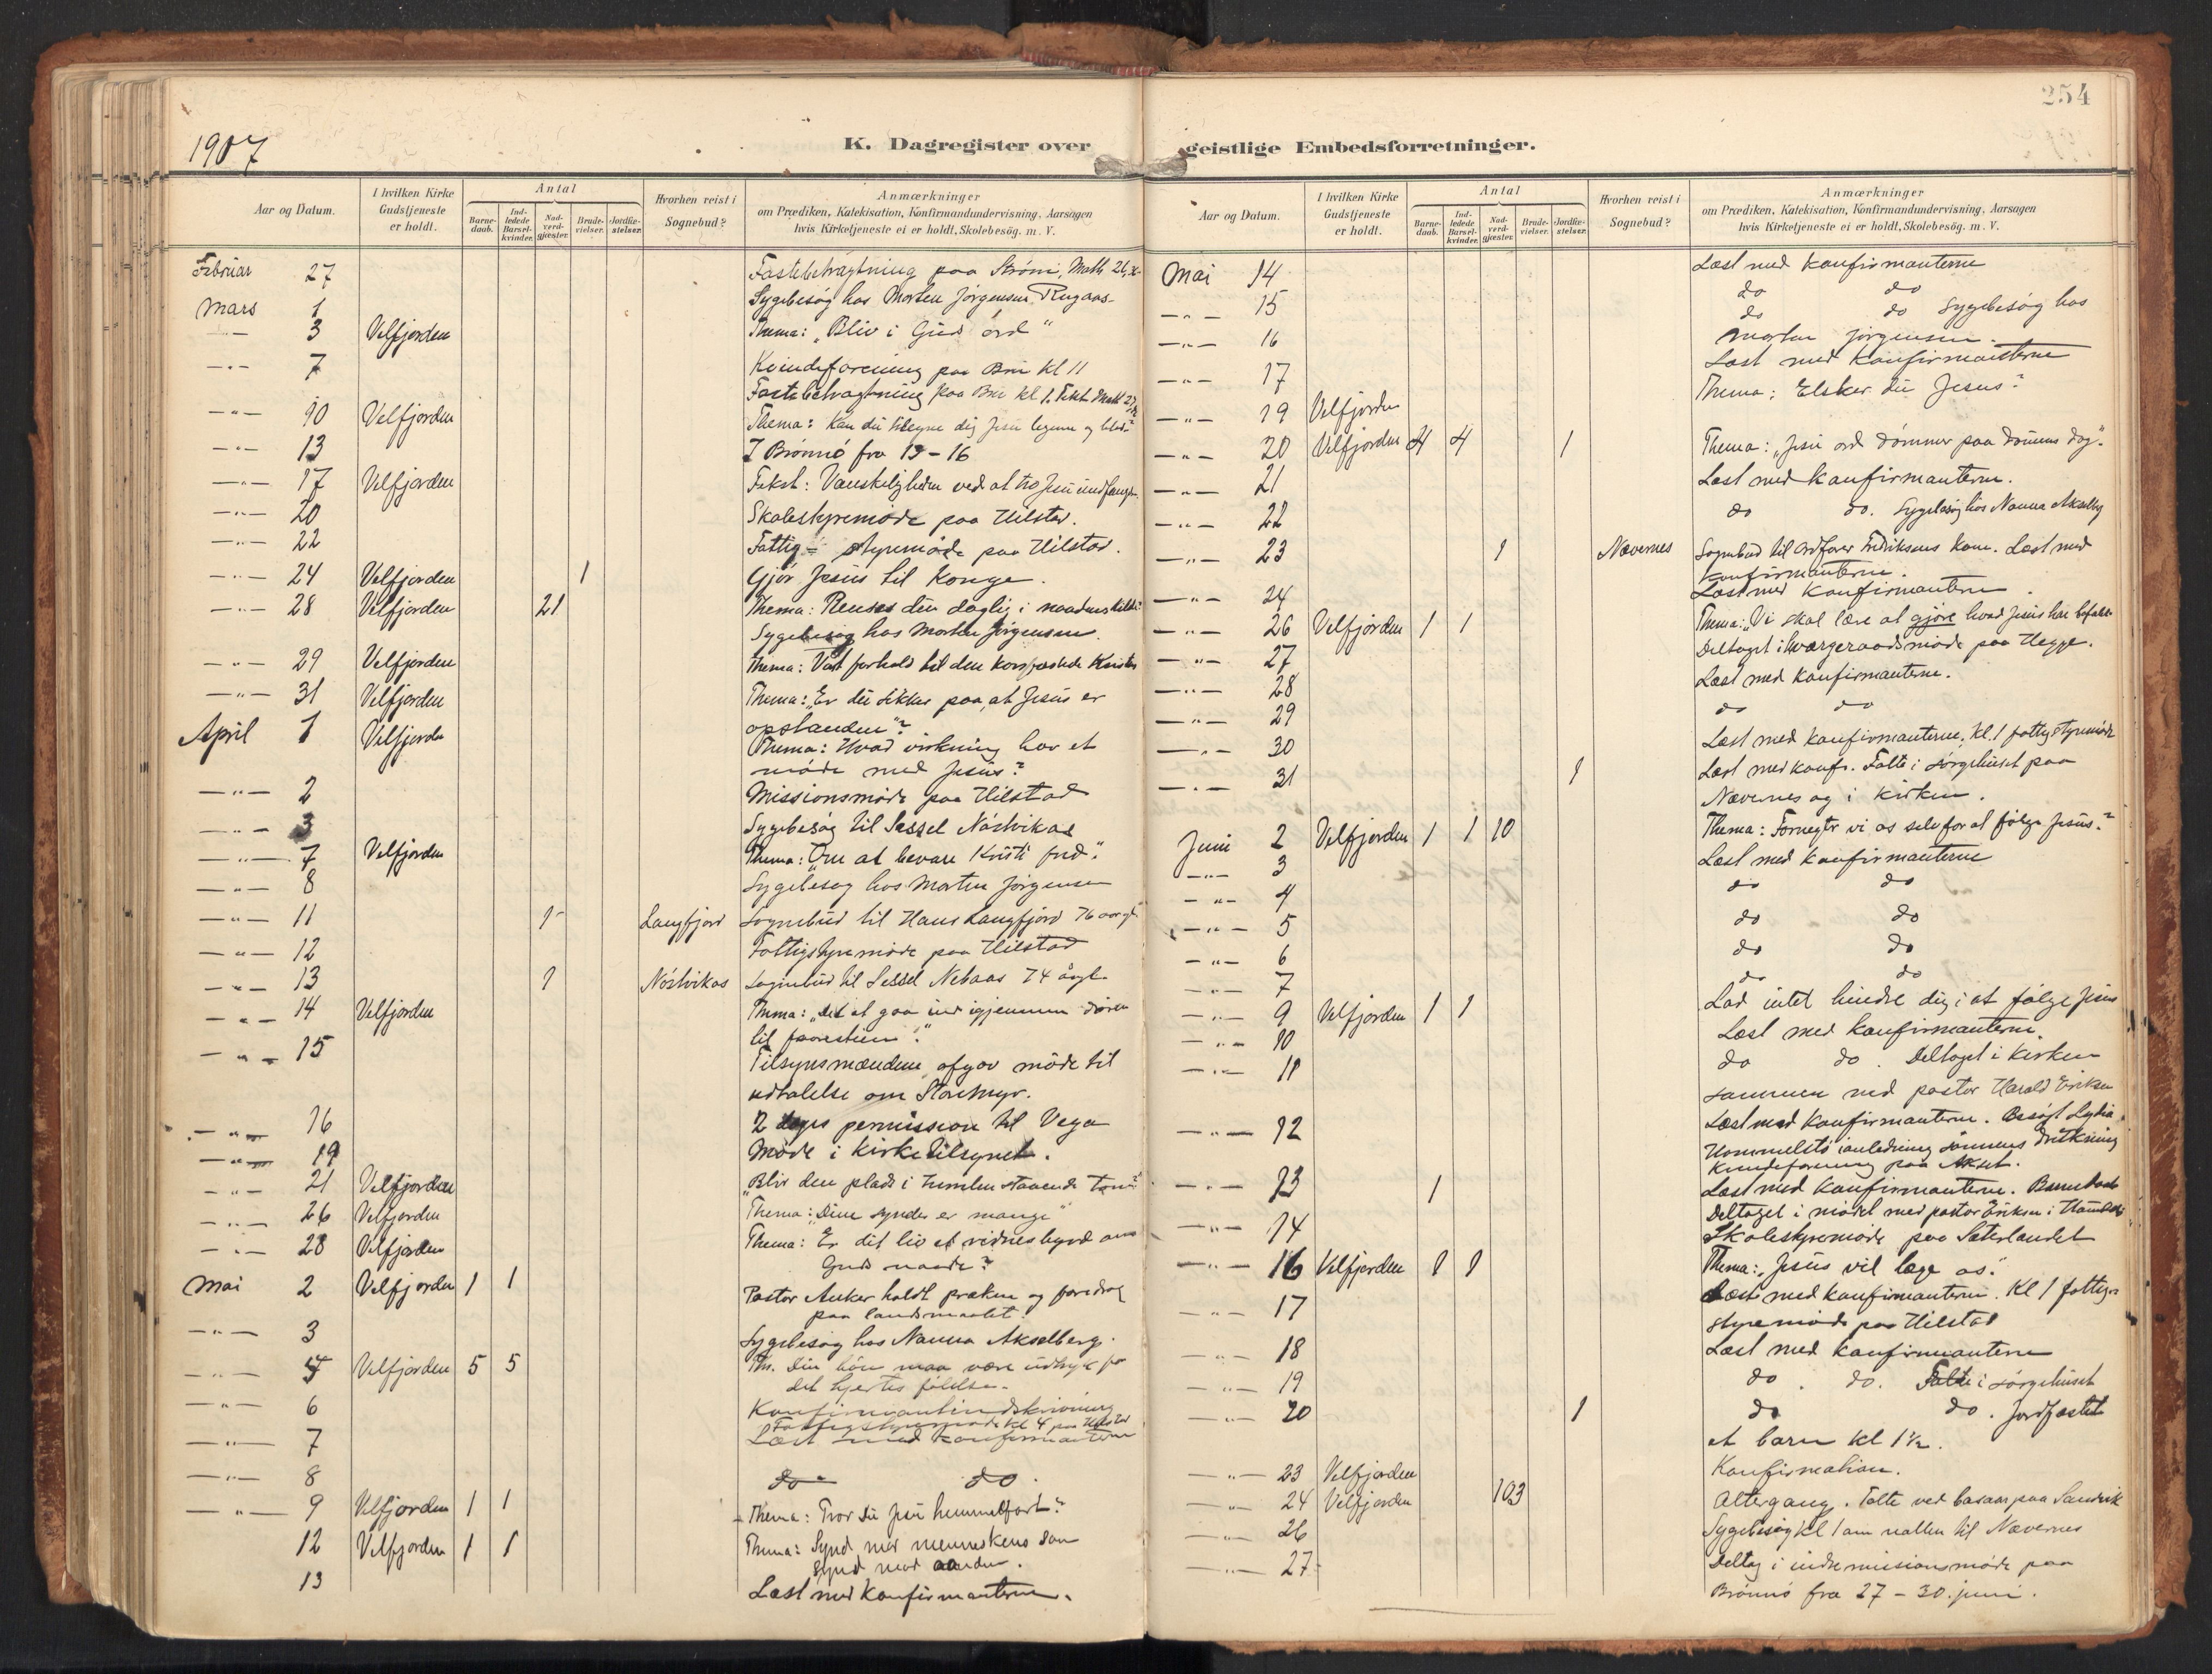 254
1907
K. Dagregister over
Aar og Datum.
I hvilken Kirke Gudstjeneste er holdt.
Antal
Barne-daab.
Ind-ledede Barsel-kvinder.
Nad-verd-gjæster.
Brude-vielser.
Jordfæ-stelser.
Hvorhen reist i Sognebud?
Anmærkninger
om Prædiken, Katekisation, Konfirmandundervisning, Aarsagen
hvis Kirketjeneste ei er holdt, Skolebesög. m. V.
Februar 27 Fastebetragtning paa Strøm, Math 26,
Mars 1 Sygebesøg hos Morten Jørgensen Rugaas
-"- 3 Velfjorden Thema: "Bliv i Guds ord"
-"- 7 Kvindeforening paa Bri kl 11
Fastebetragtning paa Bri kl 1. Tekst Math 27
-"- 10 Velfjorden Thema: Kan du tilegne dig Jesu legeme og blod?
-"- 13 I Brønnö fra 13-16
-"- 17 Velfjorden Tekst: Vanskeligheden ved at tro Jesu
-"- 20 Skolestyremöde paa Hilstad.
-"- 22 Fattig-styremöde paa Hilstad.
-"- 24 Velfjorden 1 Gjör Jesus til Konge.
-"- 28 Velfjorden 21 Thema: Renses du daglig i naadens kilde?
Sygebesøg hos Morten Jörgensen.
-"- 29 Velfjorden Thema: Vort forhold til den korsfæstede Kristus
-"- 31 Velfjorden Thema: "Er du sikker paa, at Jesus er
opstanden"?
April 1 Velfjorden Thema: Hvad virkning har et
möde med Jesus?
-"- 2 Missionsmöde paa Hilstad
-"- 3 Sygebesøg til Sessel Nöstvikas
-"- 7 Velfjorden Thema: "Om at bevare Kristi fred".
-"- 8 Sygebesøg hos Morten Jörgensen
-"- 11 1 Langfjord Sognebud til Hans Langfjord 76 aar gl.
-"- 12 Fattigstyremöde paa Hilstad
-"- 13 1 Nöstvikas Sognebud til Sessel Nebaas 74 år gl.
-"- 14 Velfjorden Thema: "Det at gaa ind igjennem dören
til faarestien".
-"- 15 Tilsynsmændene afgav möde til
udtalelse om Storemyr.
-"- 16 2 dages permission til Vega
-"- 19 Möde i Kirketilsynet.
-"- 21 Velfjorden "Blir den plads i himlen staaende tom?"
-"- 26 Velfjorden Thema: "Dine synder er mange"
-"- 28 Velfjorden Thema: Er dit liv et vidnesbyrd om
Guds naade?
Mai 2 Velfjorden 1 1 Pastor Anker holdt præken og foredrag
paa landsmaalet.
-"- 3 Sygebesøg hos Nanna Akselberg.
-"- 5 Velfjorden 5 5 Th. Din bön maa være udtryk for
dit hjertes fölelse.
-"- 6 Konfirmantindskrivning
Fattigstyremöde kl 4 paa Hilstad
-"- 7 Læst med konfirmanterne
-"- 8 do do.
-"- 9 Velfjorden 1 1 Thema: Tror du Jesu himmelfart?
12 Velfjorden 1 1 Thema: Synd mod menneskens sön
synd mod aanden.
13 Læst med konfirmanterne.
geistlige Embedsforretninger.
Aar og Datum.
I hvilken Kirke Gudstjeneste er holdt.
Antal
Barne-daab.
Ind-ledede Barsel-kvinder.
Nad-verd-gjæster.
Brude-vielser.
Jordfæ-stelser.
Hvorhen reist i Sognebud?
Anmærkninger
om Prædiken, Katekisation, Konfirmandundervisning, Aarsagen
hvis Kirketjeneste ei er holdt, Skolebesög. m. V.
Mai 14 Læst med konfirmanterne
-"- 15 do do
-"- 16 do do Sygebesøg hos
Morten Jörgensen.
-"- 17 Læst med konfirmanterne
-"- 19 Velfjorden Thema: Elsker du Jesus?
-"- 20 Velfjorden 4 4 1 Thema: "Jesu ord dömmer paa dommens dag".
-"- 21 Læst med konfirmanterne.
-"- 22 do do. Sygebesøg hos Nanna Akselberg
-"- 23 1 Nævernes Sognebud til ordförer Fredriksens kone. Læst med
konfirmanterne.
-"- 24 Læst med konfirmanterne.
-"- 26 Velfjorden 1 1 Thema: "Vi skal lære at gjøre hvad Jesus har befalet
-"- 27 Deltaget i værgeraadsmöde paa Hegge.
-"- 28 Læst med konfirmanterne.
-"- 29 do do
-"- 30 Læst med konfirmanterne, kl. 1 fattigstyremöde
-"- 31 1 Læst med konf. Talte i sørgehuset paa
Nævernes og i kirken.
Juni 2 Velfjorden 1 1 10 Thema: Fornegter vi os selv for at fölge Jesus?
-"- 3 Læst med konfirmanterne
-"- 4 do do
-"- 5 do do
-"- 6 do do
-"- 7 do do
-"- 9 Velfjorden 1 1 Lad intet hindre dig i at fölge Jesus
-"- 10 Læst med konfirmanterne
-"- 11 do do. Deltaget i kirken
sammen med pastor Harald Eriksen
-"- 12 Læst med konfirmanterne. Besögt Lydia
Hommelstö i anledning sönnens drukning
Kvindeforening paa Akset.
-"- 13 1 Læst med konfirmanterne. Barnedaab
Deltaget i mödet med pastor Eriksen i
-"- 14 Skolestyremöde paa Sæterlandet
-"- 16 Velfjorden 1 1 Thema: "Jesus vil læge os."
-"- 17 Læst med konfirmanterne. Kl 1 fattig-
styremöde paa Hilstad
-"- 18 Læst med konfirmanterne
-"- 19 do. do. Talte i sørgehuset
-"- 20 1 do do. Jordfæstet
et barn kl 1½.
-"- 23 Velfjorden Konfirmation.
-"- 24 Velfjorden 103 Altergang. Talte ved basaar paa Sandvik
-"- 26 Sygebesøg kl 1 om natten til Nævernes
-"- 27 Deltog i indremissionsmöde paa
Brönnö fra 27 - 30. juni.